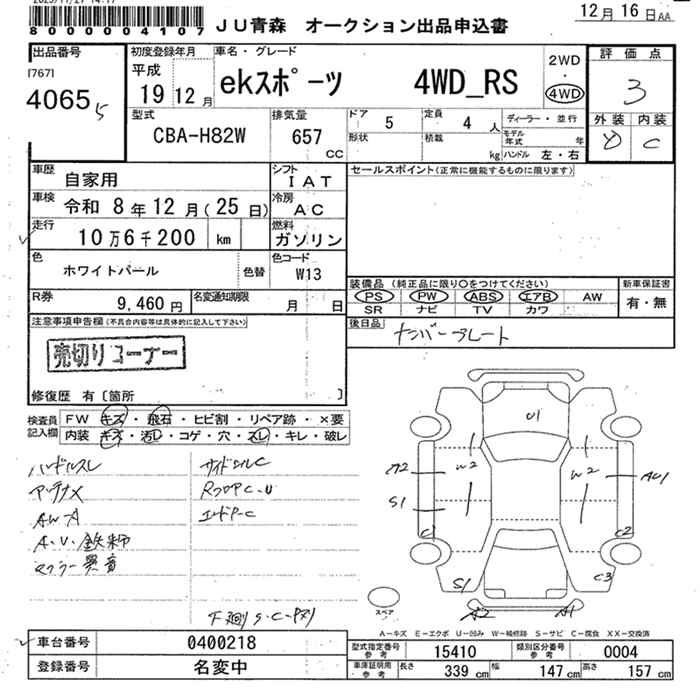 80000004107 JU青森 オークション出品申込書 12月16日AA
出品番号 [767] 4065
初度登録年月 平成 19 12月
車名・グレード ekスポーツ 4WD_RS
2WD ・ 4WD
評価点 3
外装 内装 C
型式 CBA-H82W
排気量 657 CC
ドア 5 定員 4人
形状 積載 kg
ディーラー・並行
モデル年式 年
ハンドル 左・右
車歴 自家用
シフト IAT
セールスポイント(正常に機能するものに限ります)
車検 令和 8年12月(25日)
冷房 AC
走行 10万6千200 km
燃料 ガソリン
色 ホワイトパール 色替
色コード W13
装備品 (純正品に限り〇をつけてください)
新車保証書 有・無
PS PW ABS エアB AW
SR ナビ TV カワ
R券 9,460円
名変通知期限 月 日
後日品 ナンバープレート
注意事項申告欄(不具合内容等は具体的に記入して下さい)
売切りコーナー
修復歴 有〔箇所 〕
検査員記入欄
FW キズ・飛石・ヒビ割・リペア跡・×要
内装 キズ・汚レ・コゲ・穴・スレ・キレ・破レ
ハンドルスレ
アンテナX
AW-A
A.U.鉄粉
マフラー異音
サイドシルC
RフロアC.U
エンドP-C
下廻りS.C
U1
A2
W2
W2
AU1
S1
C1
C2
S1
C3
A2
A1
スペア
A-キズ E-エクボ U-凹み W-補修跡 S-サビ C-腐食 XX-交換済
車台番号 0400218
型式指定番号 参考 15410
類別区分番号 参考 0004
登録番号 名変中
車庫証明用 参考 長さ 339cm 幅 147cm 高さ 157cm